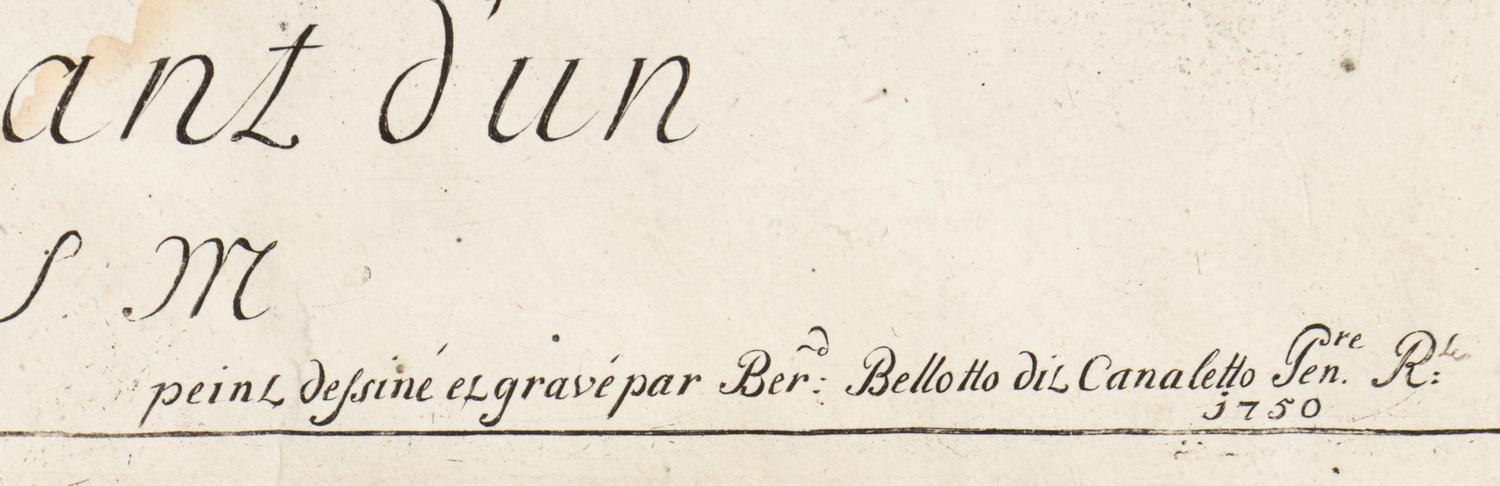 ant d'un
S M
peint deſsiné et gravé par Ber:d Bellotto dit Canaletto Pen.re R:le
1750